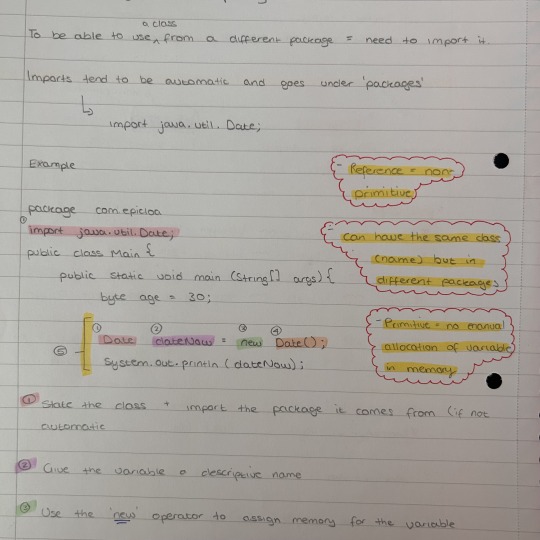 a class
To be able to use ^ from a different package = need to import it.
Imports tend to be automatic and goes under 'packages'
↳ import java.util.Date;
Example
- Reference = non-
primitive
package com.epicloa
① import java.util.Date;
public class Main {
public static void main (String[] args) {
byte age = 30;
- can have the same class
(name) but in
different packages
① ② ③ ④
⑤ Date dateNow = new Date();
System.out.println (dateNow);
- Primitive = no manual
allocation of variable
in memory
① State the class + import the package it comes from (if not
automatic
② Give the variable a descriptive name
③ Use the 'new' operator to assign memory for the variable